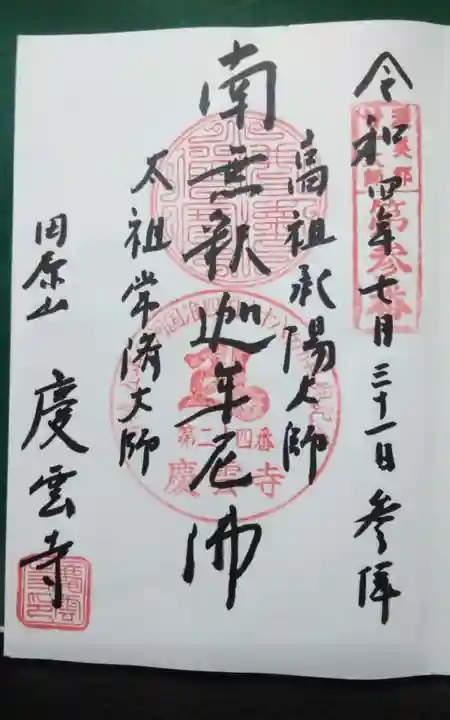 令和四年七月三十一日 参拝
第参番
高祖承陽大師
南無釈迦牟尼佛
第二十四番
慶雲寺
太祖常済大師
田原山 慶雲寺